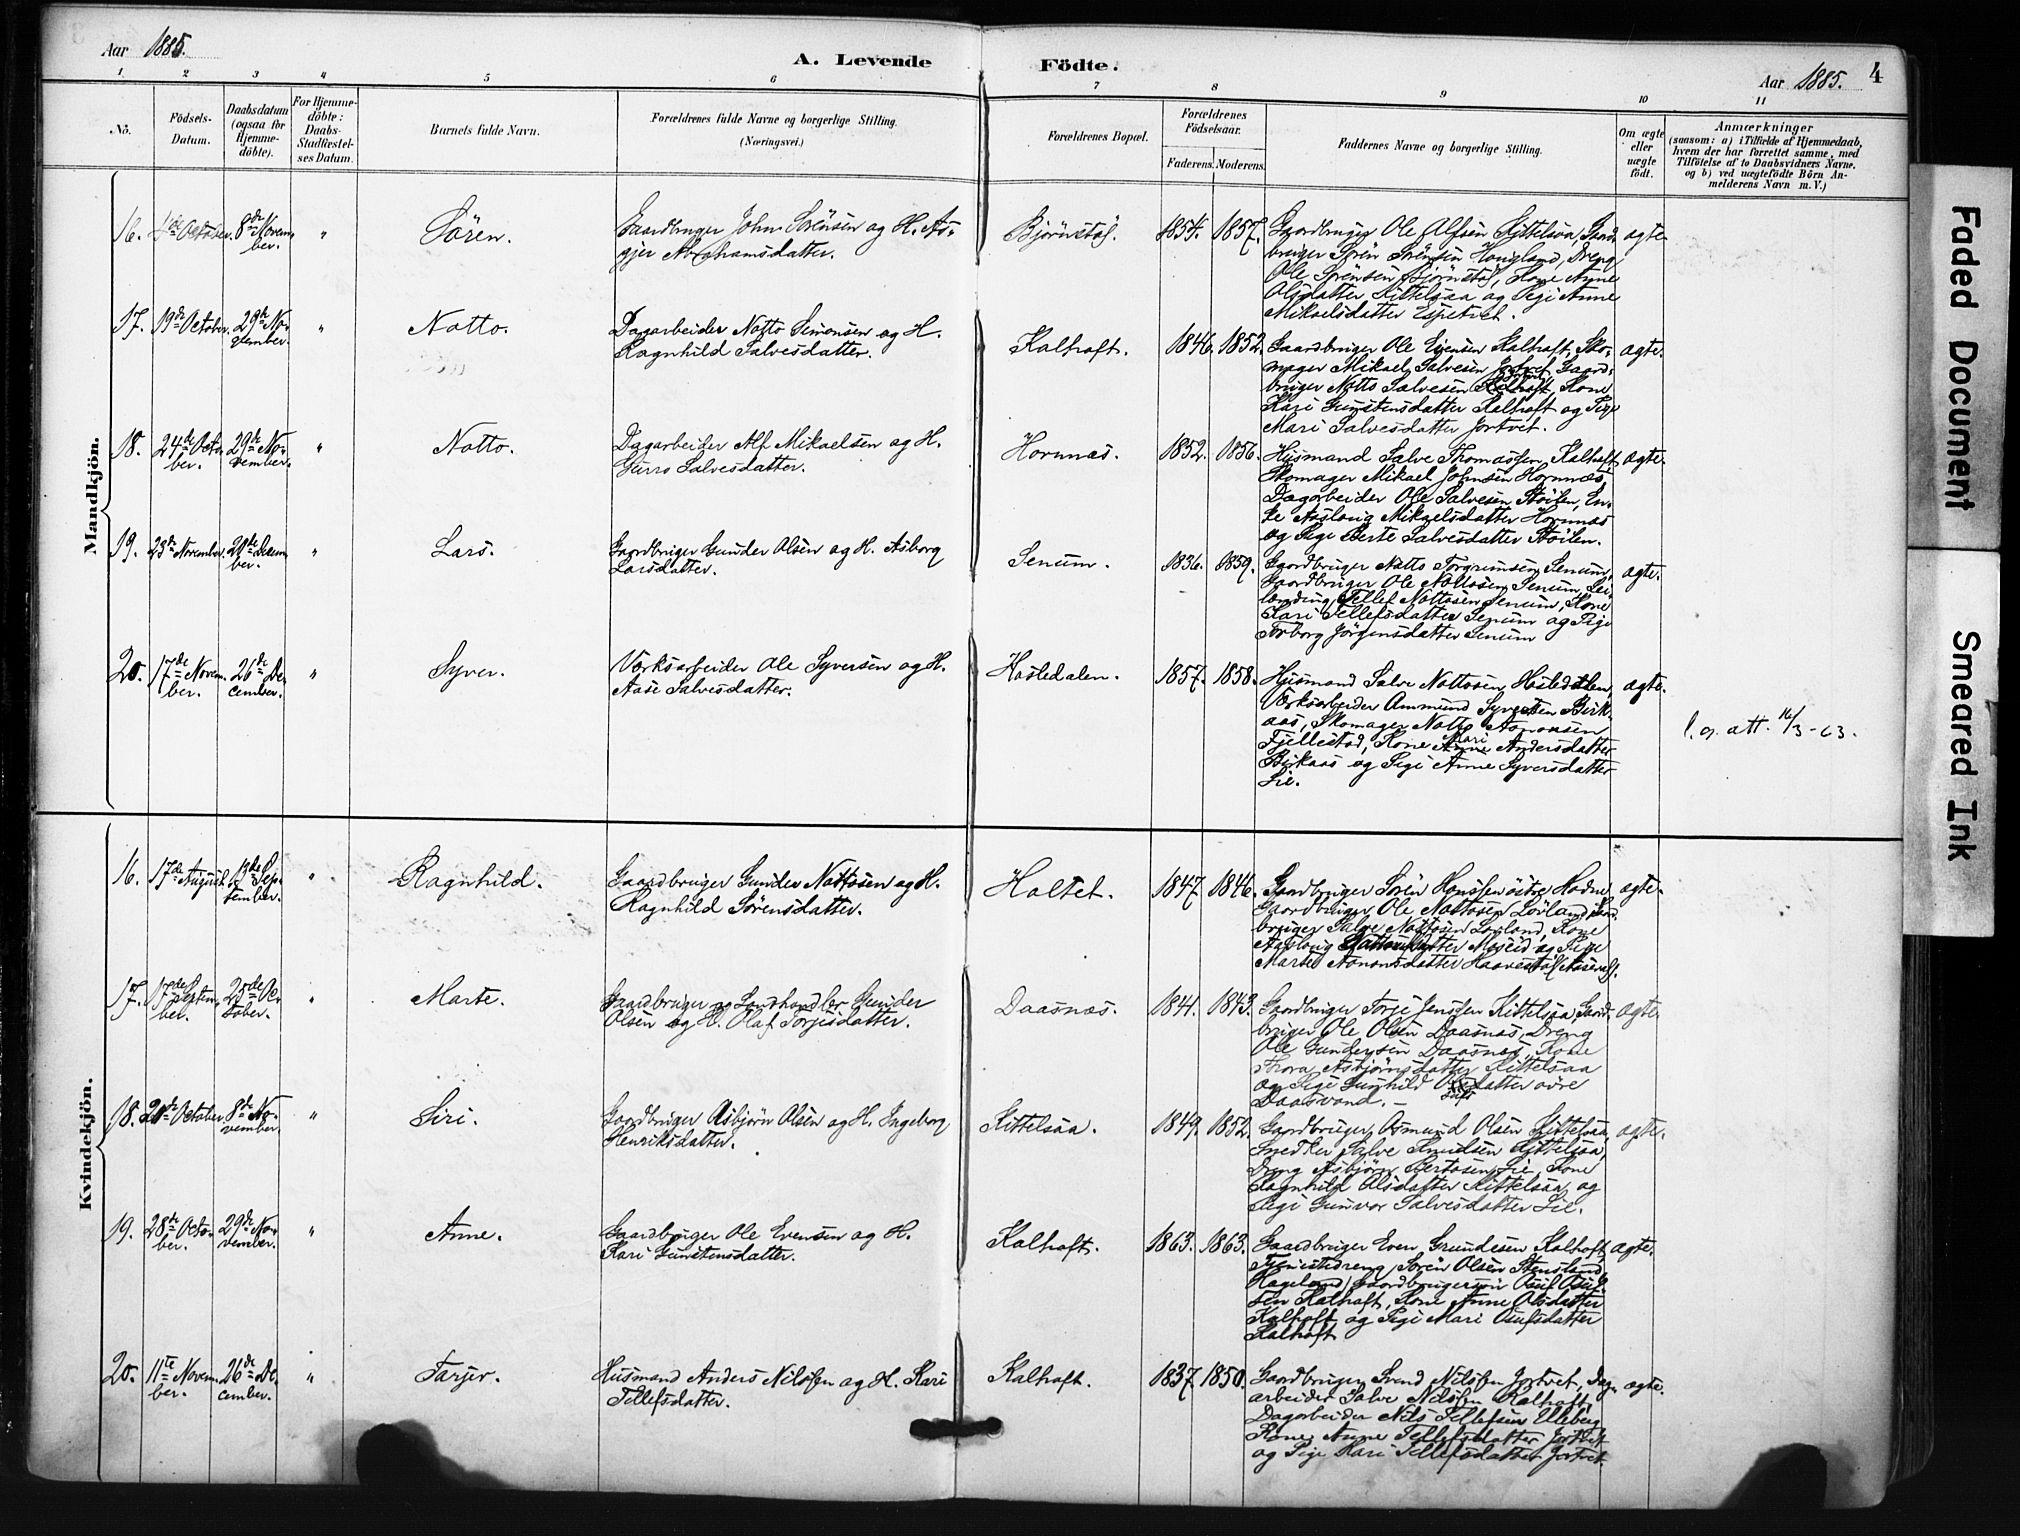 Aar 1885.
A. Levende Födte.
Aar 1885. 4
1 2 3 4 5 6 7 8 9 10 11
No.
Födsels-Datum.
Daabsdatum (ogsaa for Hjemme-döbte).
For Hjemme-döbte: Daabs-Stadfæstel-ses Datum.
Barnets fulde Navn.
Forældrenes fulde Navne og borgerlige Stilling.
(Næringsvei.)
Forældrenes Bopæl.
Forældrenes Födselsaar.
Faderens. Moderens.
Faddernes Navne og borgerlige Stilling.
Om ægte eller uægte födt.
Anmærkninger
(saasom: a) i Tilfælde af Hjemmedaab,
hvem der har forrettet samme, med
Tilföielse af to Daabsvidners Navne.
og b) ved uægtefödte Börn An-
melderens Navn m. V.)
Mandkjön.
16. 4de October. 8de Novem-
ber. " Sören. Gaardbruger John Sörensen og H. As-
gjer Abrahamsdatter. Bjørnstöl. 1854. 1857. Gaardbruger Ole Alfsen Kittelsaa, Gaard-
bruger Sören Sörensen Hougland, Dreng
Ole Sörensen Bjørnstöl, Kone Anne
Olsdatter Kittelsaa og Pige Anne
Mikaelsdatter Espetvet. ægte
17. 19de October. 29de No-
vember. " Notto. Dagarbeider Notto Simonsen og H.
Ragnhild Salvesdatter. Kalhaft. 1846. 1852. Gaardbruger Ole Evensen Kalhaft, Sko-
mager Mikael Salvesen Jortvet, Gaard-
bruger Notto Salvesen Kalhaft, Kone
Kari Gunstensdatter Kalhaft og Pige
Mari Salvesdatter Jortvet. ægte.
18. 24de Octo-
ber. 29de No-
vember. " Notto. Dagarbeider Alf Mikaelsen og H.
Gurro Salvesdatter. Hornnæs. 1852. 1856. Husmand Salve Thomassen Kalhaft
Skomager Mikael Johnsen Hornnæs,
Dagarbeider Ole Salvesen Stöilen, En-
ke Aaslaug Mikaelsdatter Hornnæs
og Pige Berte Salvesdatter Stöilen. ægte.
19. 23de November. 28de Decem-
ber. " Lars. Gaardbruger Gunder Olsen og H. Asborg
Larsdatter. Senum. 1836. 1859. Gaardbruger Notto Torgrimsen Senum,
Gaardbruger Ole Nottosen Senum, Lei-
lænding Tellef Nottosen Senum, Kone
Kari Tellefsdatter Senum og Pige
Torborg Jörgensdatter Senum ægte.
20. 17de Novem-
ber. 26de De-
cember. " Syver. Værksarbeider Ole Syversen og H.
Aase Salvesdatter. Hasledalen. 1857. 1858. Husmand Salve Nottosen Hasledalen,
Værksarbeider Ammund Syversen Birk-
aas, Skomager Notto Aanonsen
Fjellestad, Kone Mari Andersdatter
Birkaas og Pige Anne Syversdatter
Lie. ægte. l. o. att. 16/3-63.
Kvindekjön.
16. 17de August. 13de Sep-
tember. " Ragnhild. Gaardbruger Gunder Nottosen og H.
Ragnhild Sörensdatter. Holtet. 1847. 1846. Gaardbruger Sören Hanssen östre Hodne
Gaardbruger Ole Nottosen Lövland, Gaard-
bruger Salve Nottosen Lövland, Kone
Aaslaug Nattousdatter og Pige
Marte Aanonsdatter ægte.
17. 17de Septem-
ber. 25de Oc-
tober. " Marte. Gaardbruger og Landhandler Gunder
Olsen og H. Olaf Torjusdatter. Daasnæs. 1841. 1843. Gaardbruger Torje Jenssen Kittelsaa, Gaard-
bruger Ole Olsen Daasnæs, Dreng
Ole Gundersen Daasnæs, Kone
Thora Asbjörnsdatter Kittelsaa
og Pige Gunhild Olsdatter övre
Daasvand. ægte.
18. 20de October 8de No-
vember. " Siri. Gaardbruger Asbjörn Olsen og H. Ingeborg
Henriksdatter. Kittelsaa. 1849. 1852. Gaardbruger Osmund Olsen Kittelsaa,
Snedker Salve Knudsen Kittelsaa,
Dreng Asbjörn Bertosen Lie, Kone
Ragnhild Olsdatter Kittelsaa, og
Pige Gunvor Salvesdatter Lie. ægte.
19. 28de Octo-
ber. 29de No-
vember. " Anne. Gaardbruger Ole Evensen og H.
Kari Gunstensdatter. Kalhaft. 1863. 1863. Gaardbruger Even Grundesen Kalhaft,
Tjenestedreng Sören Olsen Stensland
Hægeland, Gaardbrugersön Osuf Osuf-
sen Kalhaft, Kone Anne Olsdatter
Kalhaft og Pige Mari Osufsdatter
Kalhaft ægte.
20. 11te Novem-
ber. 26de De-
cember. " Tarjer. Husmand Anders Nilssen og H. Kari
Tellefsdatter. Kalhaft. 1837. 1850. Gaardbruger Svend Nilssen Jortvet, Dag-
arbeider Salve Nilssen Kalhaft,
Dagarbeider Nils Tellefsen Elleberg
Kone Anne Tellefsdatter Jortvet
og Pige Kari Tellefsdatter Jortvet. ægte.
Faded Document
Smeared Ink